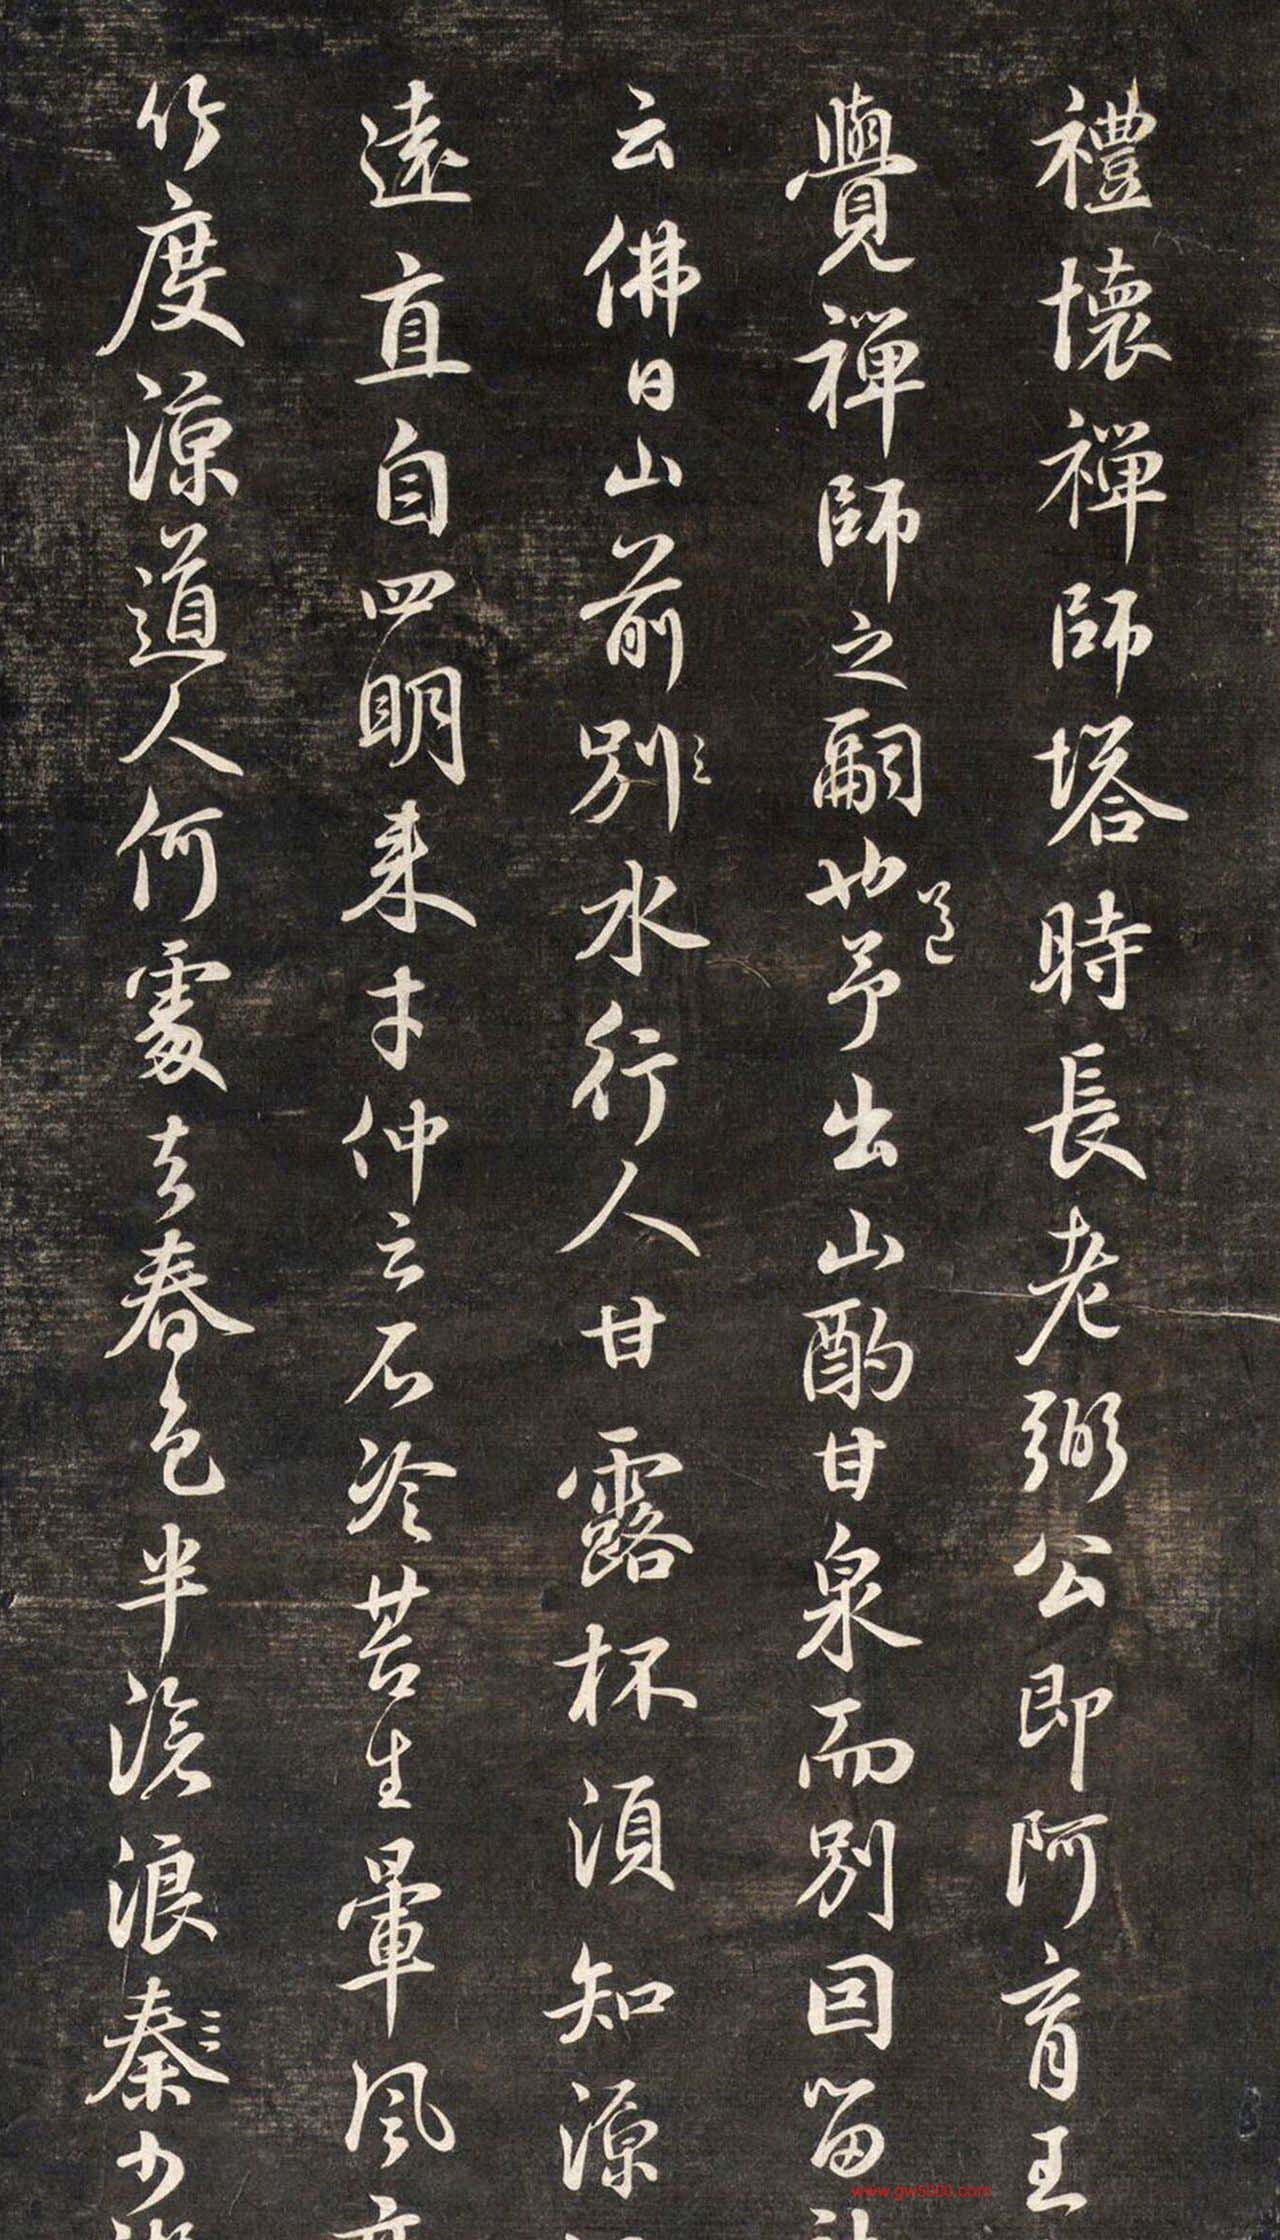 禮懷禪師塔時長老弼公即阿育王
覺禪師之嗣也予出山酌甘泉而別因留
云佛日山前別水行人甘露杯須知源
遠直自四明來才仲云石冷苔生暈風
竹度涼道人何處去春色半滄浪秦少
www.gw5000.com